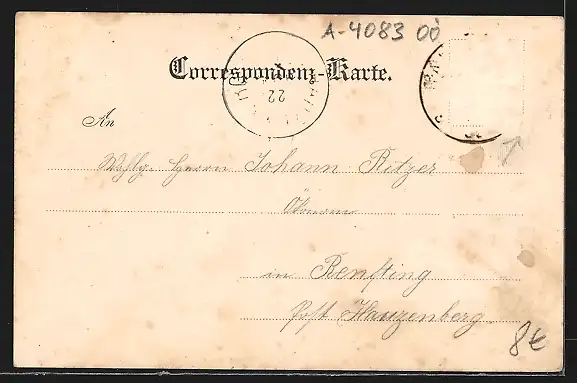 A-4083 00
Correspondenz-Karte.
22
An
Wohlg. Herrn Johann Ritzer
Ökonom
in Renfting
Post Hauzenberg
8€